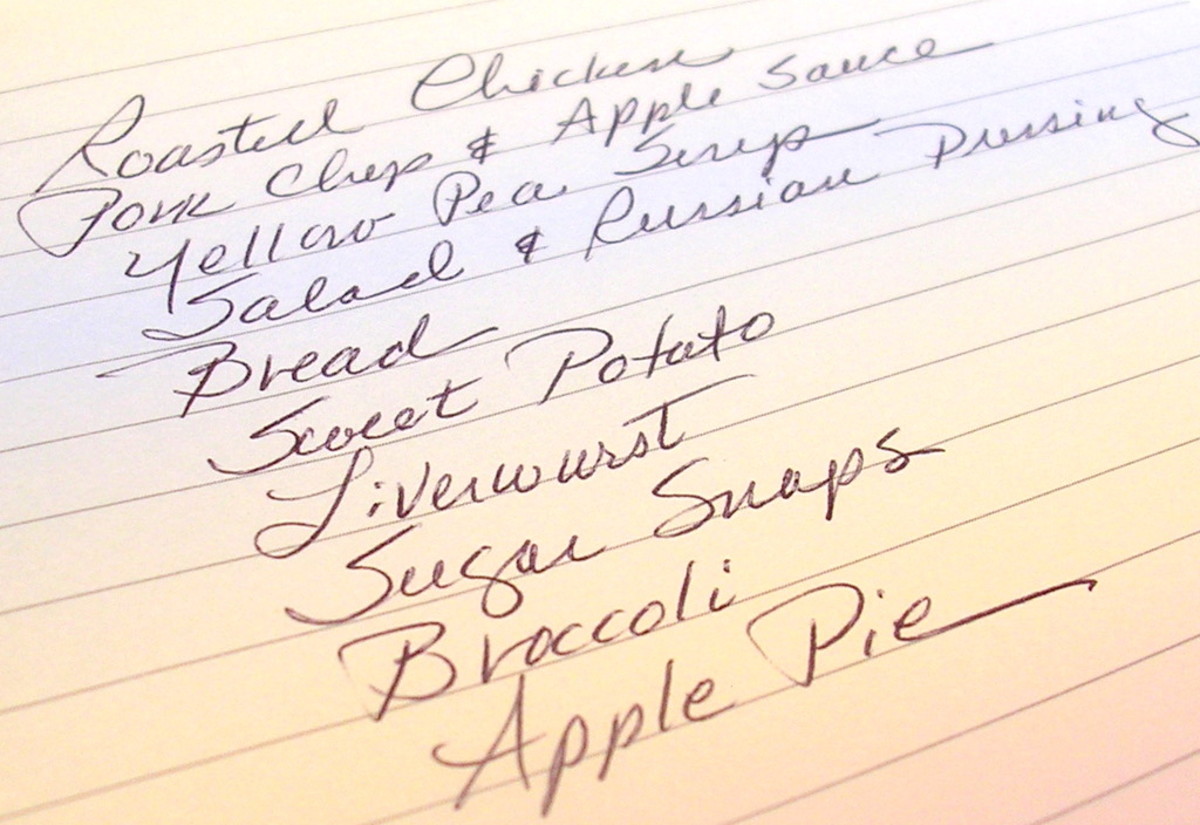 Roasted Chicken
Pork Chop & Apple Sauce
Yellow Pea Soup
Salad & Russian Dressing
Bread
Sweet Potato
Liverwurst
Sugar Snaps
Broccoli
Apple Pie